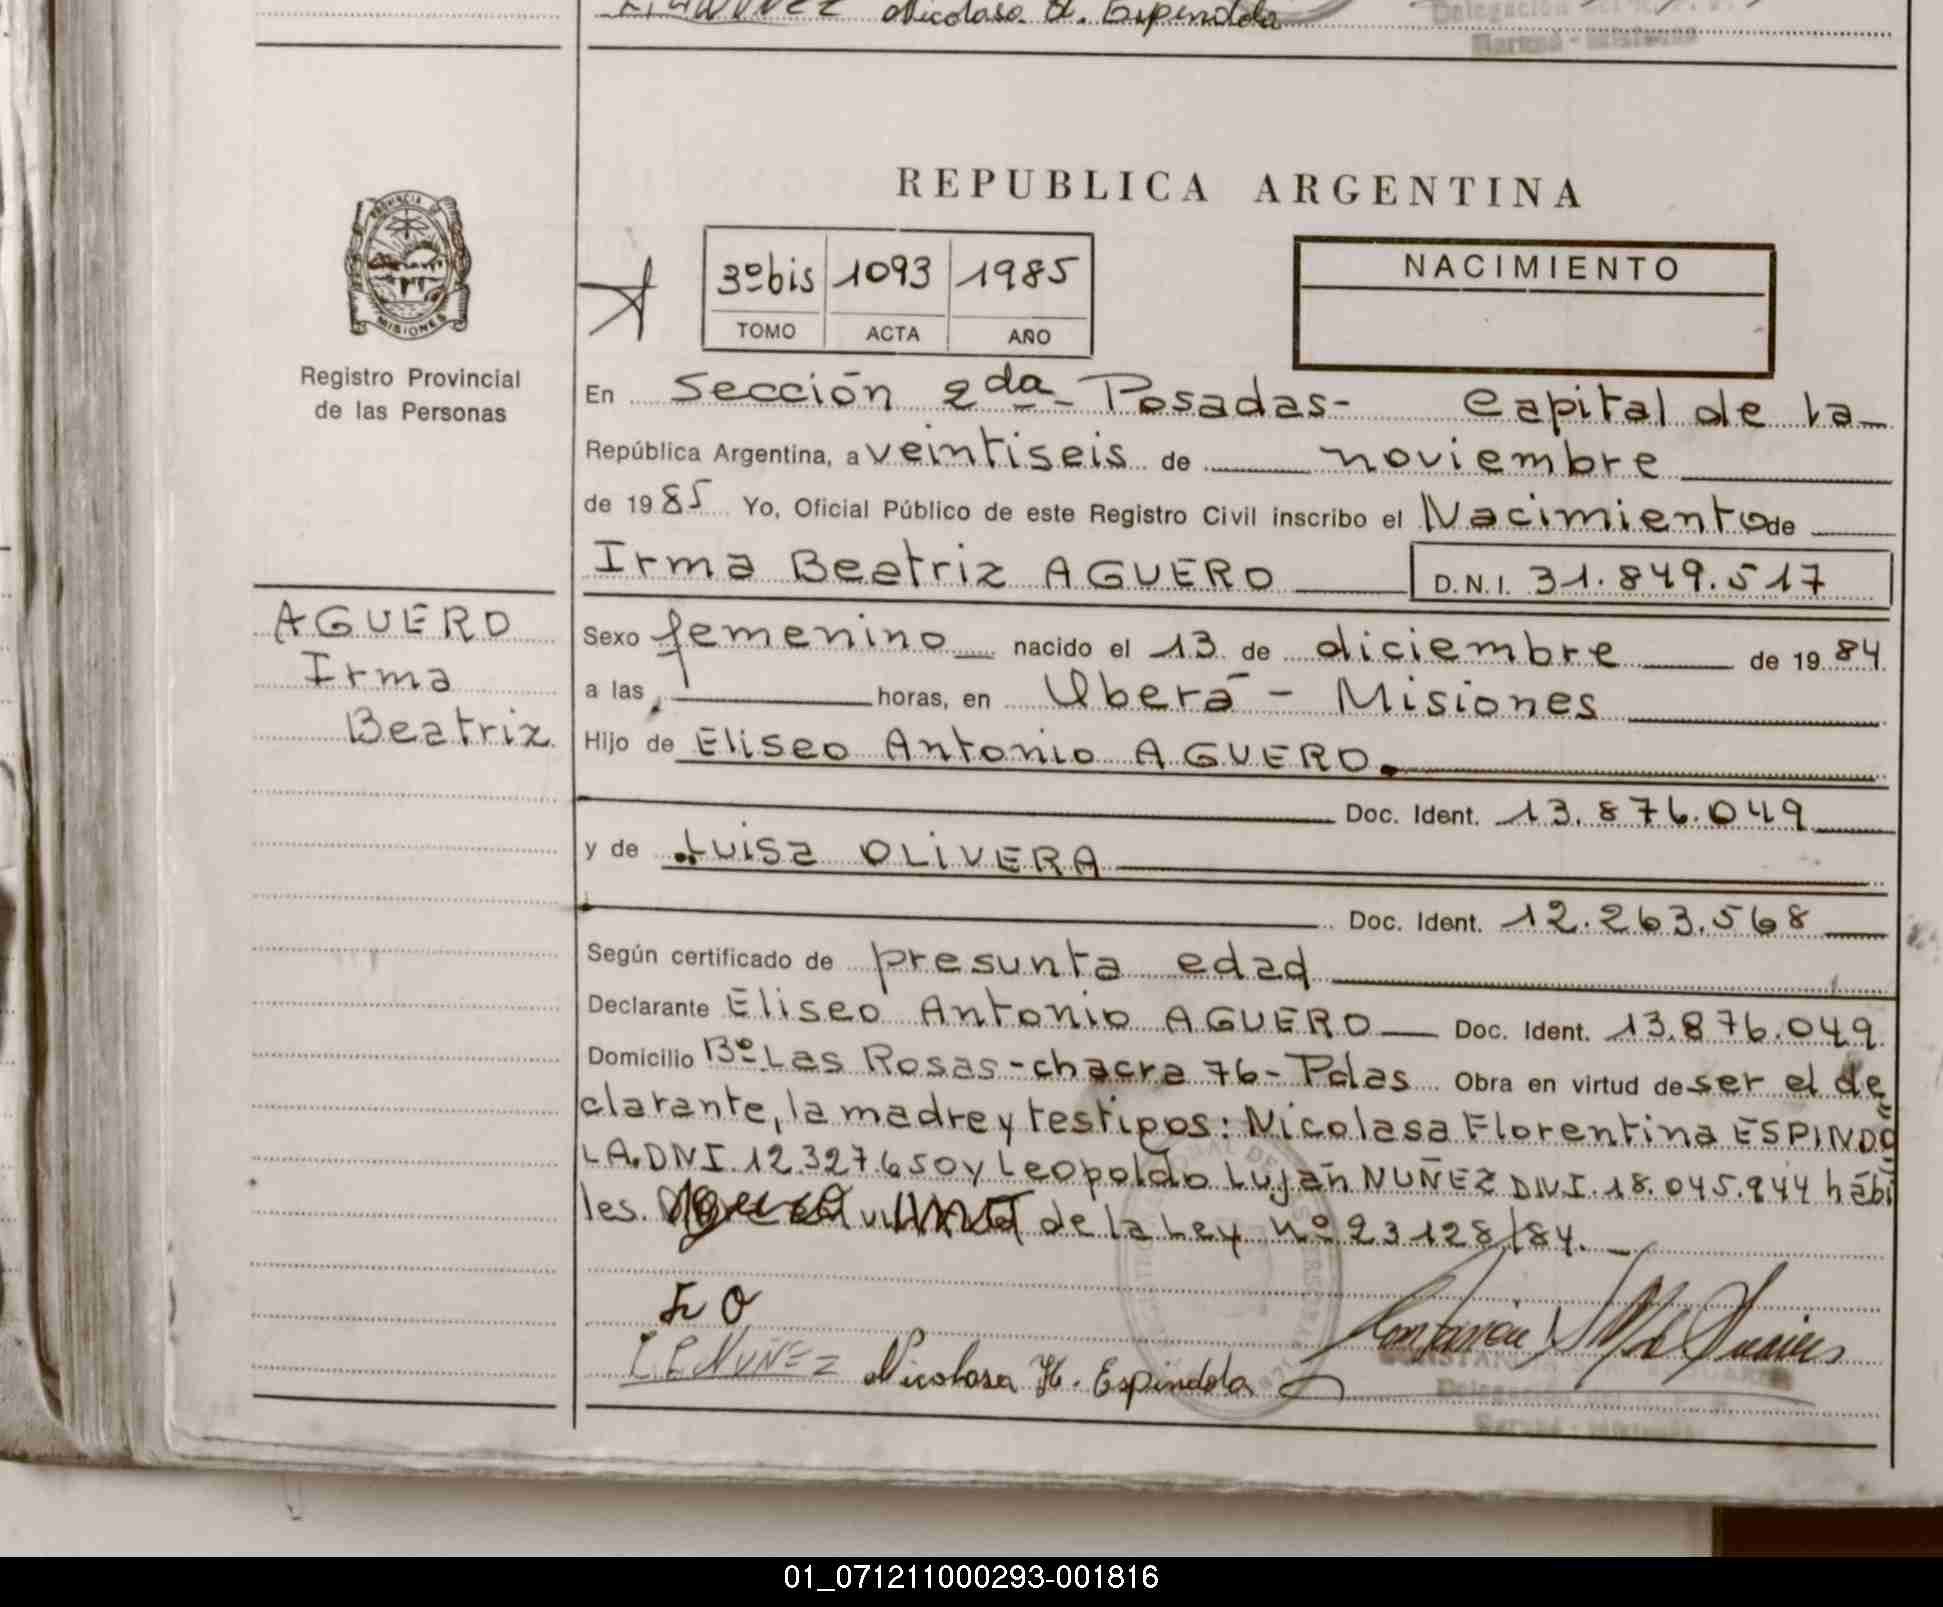 Nicolasa H. Espindola
Delegación
REPUBLICA ARGENTINA
PROVINCIA DE
MISIONES
Registro Provincial
de las Personas
3º bis 1093 1985
TOMO ACTA AÑO
NACIMIENTO
En Sección 2da - Posadas- Capital de la
República Argentina, a veintiseis de noviembre
de 1985 Yo, Oficial Público de este Registro Civil inscribo el Nacimiento de
Irma Beatriz AGUERO D.N.I. 31.849.517
AGUERO
Irma
Beatriz
Sexo femenino nacido el 13 de diciembre de 1984
a las horas, en Uberá - Misiones
Hijo de Eliseo Antonio AGUERO.
Doc. Ident. 13.876.049
y de Luisa OLIVERA
Doc. Ident. 12.263.568
Según certificado de presunta edad
Declarante Eliseo Antonio AGUERO Doc. Ident. 13.876.049
Domicilio Bº Las Rosas - chacra 76 - Pdas Obra en virtud de ser el de
clarante, la madre y testigos: Nicolasa Florentina ESPINDO
LA. DNI 12.327.650 y Leopoldo Luján NUÑEZ DNI. 18.045.944 hábi
les. de la Ley Nº 23128/84.
L.E NUÑEZ Nicolasa H. Espindola
01_071211000293-001816